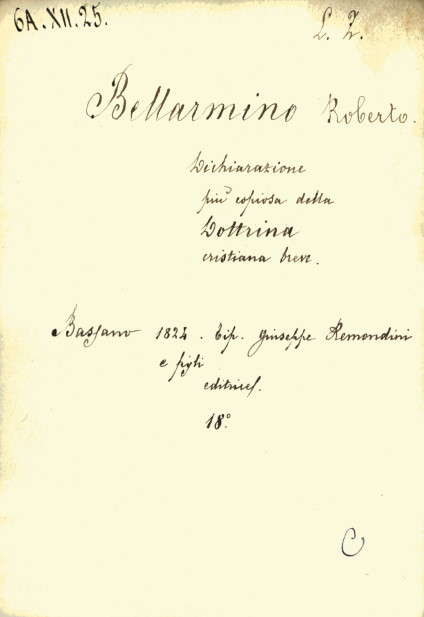 6A.XII.25.
L. Z.
Bellarmino Roberto.
Dichiarazione
più copiosa della
Dottrina
cristiana breve.
Bassano 1824. Tip. Giuseppe Remondini
e figli
editrice.
18°
C